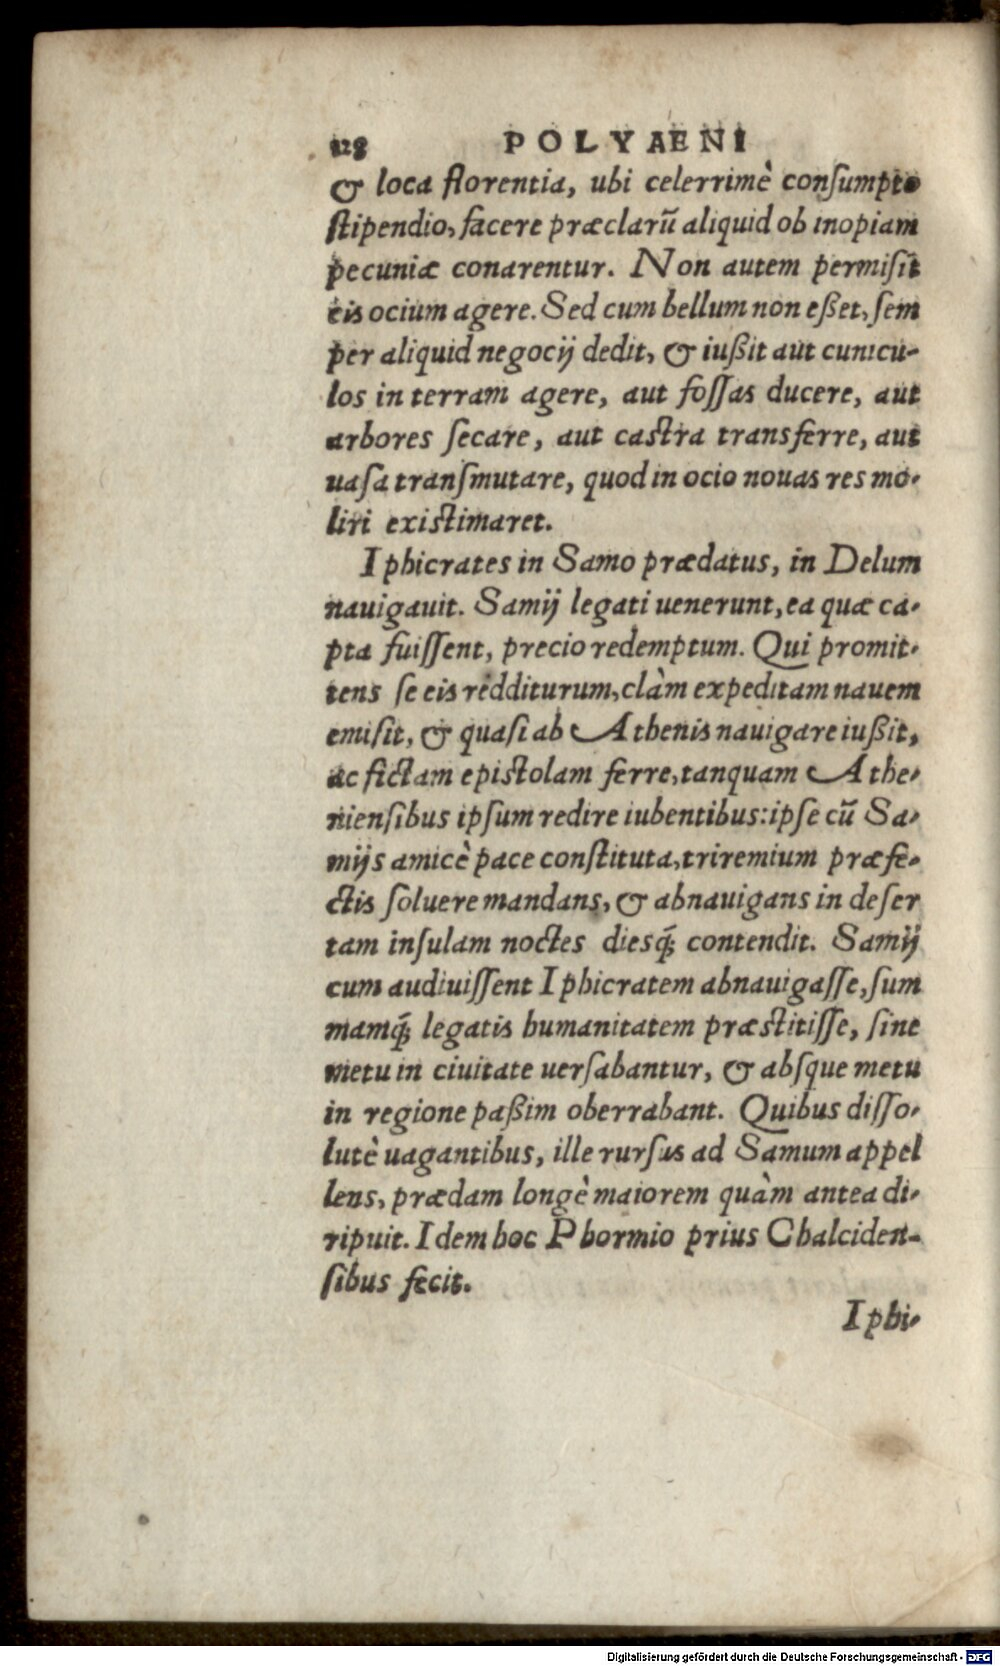 128 POLYAENI
& loca florentia, ubi celerrimè conſumpto
ſtipendio, facere præclarũ aliquid ob inopiam
pecuniæ conarentur. Non autem permiſit
eis ocium agere. Sed cum bellum non eßet, ſem
per aliquid negocij dedit, & iußit aut cunicu-
los in terram agere, aut foſſas ducere, aut
arbores ſecare, aut caſtra transferre, aut
uaſa tranſmutare, quod in ocio nouas res mo-
liri exiſtimaret.
Iphicrates in Samo prædatus, in Delum
nauigauit. Samij legati uenerunt, ea quæ ca-
pta fuiſſent, precio redemptum. Qui promit-
tens ſe eis redditurum, clàm expeditam nauem
emiſit, & quaſi ab Athenis nauigare iußit,
ac fictam epiſtolam ferre, tanquam Athe-
nienſibus ipſum redire iubentibus: ipſe cũ Sa-
mijs amicè pace conſtituta, triremium præfe-
ctis ſoluere mandans, & abnauigans in deſer
tam inſulam noctes diesq́; contendit. Samij
cum audiuiſſent Iphicratem abnauigaſſe, ſum
mamq́; legatis humanitatem præſtitiſſe, ſine
metu in ciuitate uerſabantur, & abſque metu
in regione paßim oberrabant. Quibus diſſo-
lutè uagantibus, ille rurſus ad Samum appel
lens, prædam longè maiorem quàm antea di-
ripuit. Idem hoc Phormio prius Chalciden-
ſibus fecit.
Iphi-
Digitalisierung gefördert durch die Deutsche Forschungsgemeinschaft - DFG